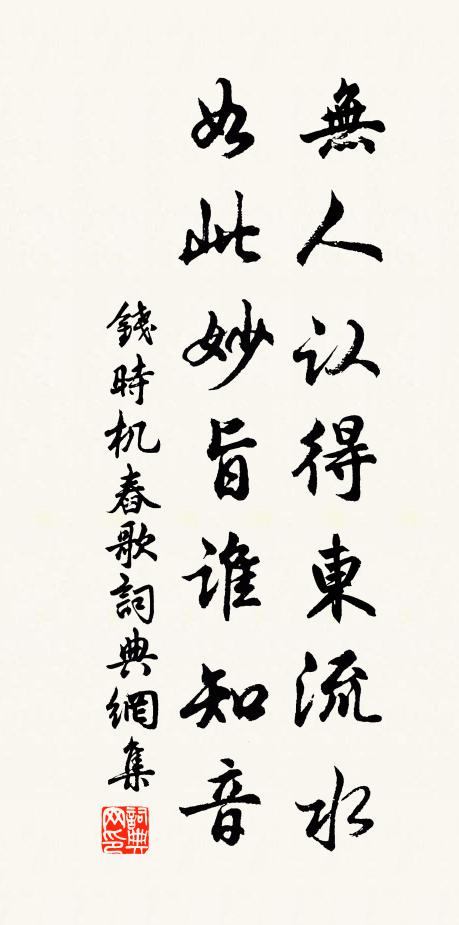 無人认得東流水
如此妙旨谁知音
錢時机舂歌詞典網集
詞典网印